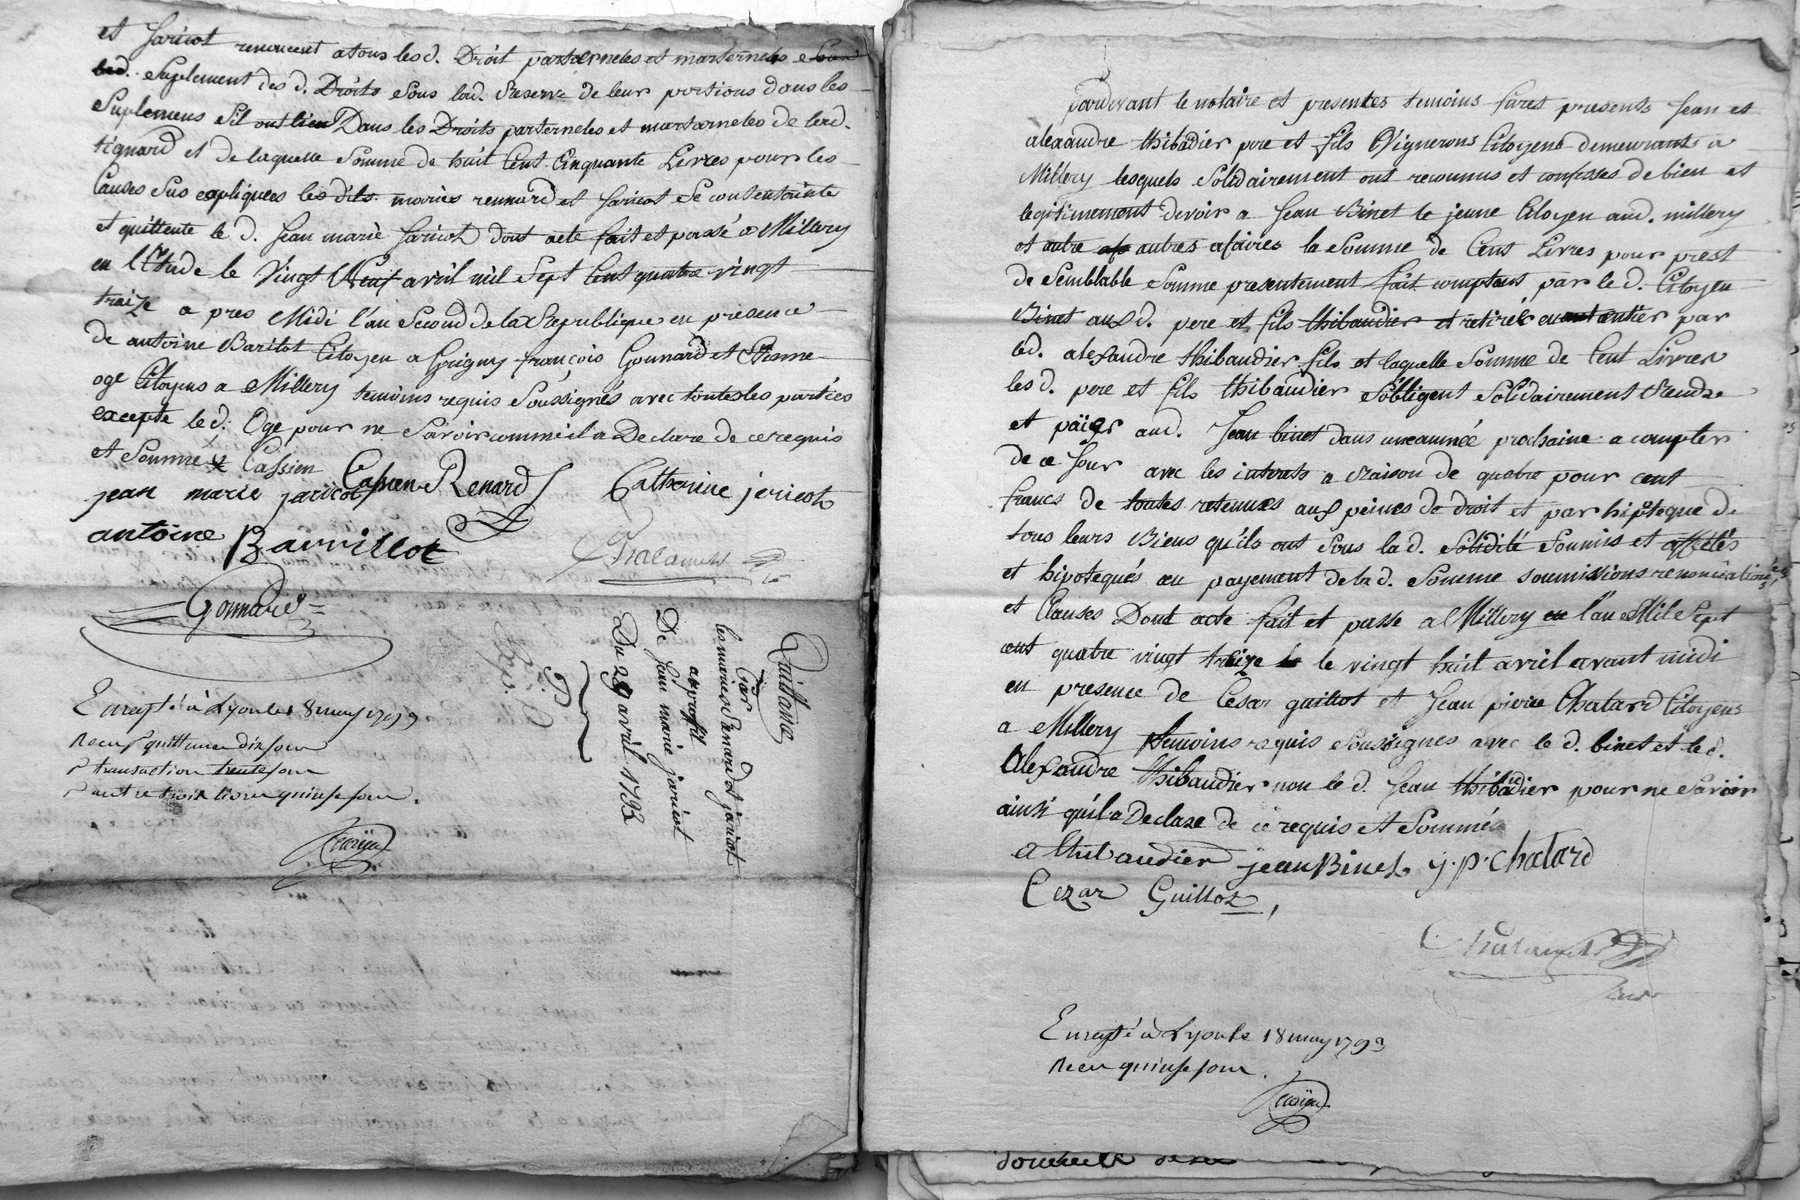 et Jaricot renoncent a tous les d. Droit parternelles et marternels
Suplement des d. Droits sous lad. Reserve de leur portions dans les
Suplemens s'il Dans les Droits parterneles et marterneles de lad.
tignard et de laquelle Somme de huit Cent Cinquante Livres pour les
Causes Sus expliquees les dits mariés rennard et Jaricot Se contentente
et quittente le d. Jean marie Jaricot dont acte fait et passé a Millery
en l'Etude le Vingt Neuf avril mil Sept Cent quatre vingt
traize a pres Midi l'an Second de la Republique en presence
de antoine Barilot Citoyen a Grigny françois Gonnard et Etienne
oge Citoyens a Millery temoins requis Soussignés avec toutes les parties
excepte le d. Oge pour ne Savoir comme il a Declare de ce requis
et Sommé Cassien
jean marie jaricot Cassien Renard Catherine jericot
antoine Barrillot
Gonnard
Quittance
Par
les mariés Renard et jaricot
au proffit
De Jean marie jaricot
Du 29 avril 1793
Enregté à Lyon le 18 may 1793
Reçu quittance dix sous
transaction trente sous
quinse sous.
pardevant le notaire et presentes temoins furet presents Jean et
alexandre thibadier pere et fils Vignerons Citoyens demeurants a
Millery lesquels Solidairement ont reconnus et confesses de bien et
legitimement devoir a Jean Binet le jeune Citoyen aud. millery
et autre autres afaires la Somme de Cent Livres pour prest
de Semblable Somme presentement fait comptant par le d. Citoyen
Binet aux d. pere et fils thibaudier et retirés par
led. alexandre thibaudier fils et laquelle Somme de Cent Livres
les d. pere et fils thibaudier s'obligent Solidairement Rendre
et païer aud. Jean binet dans une année prochaine a compter
de ce Jour avec les interets a Raison de quatre pour cent
francs de toutes retenues aux peines de droit et par hipoteque de
tous leurs Biens qu'ils ont Sous la d. Solidité Soumis et affectés
et hipotequés au payement de la d. Somme soumissions renonciations
et Clauses Dont acte fait et passe a Millery l'an Mil Sept
cent quatre vingt traize le vingt huit avril avant midi
en presence de Cesar guillot et Jean pierre Chatard Citoyens
a Millery temoins requis soussignes avec le d. binet et le d.
Alexandre thibaudier non le d. Jean thibadier pour ne Savoir
ainsi qu'il a Declare de ce requis et Sommé
a thibaudier jean Binet j. p. chatard
Cezar Guillot
Enregté à Lyon le 18 may 1793
Reçu quinse sous.